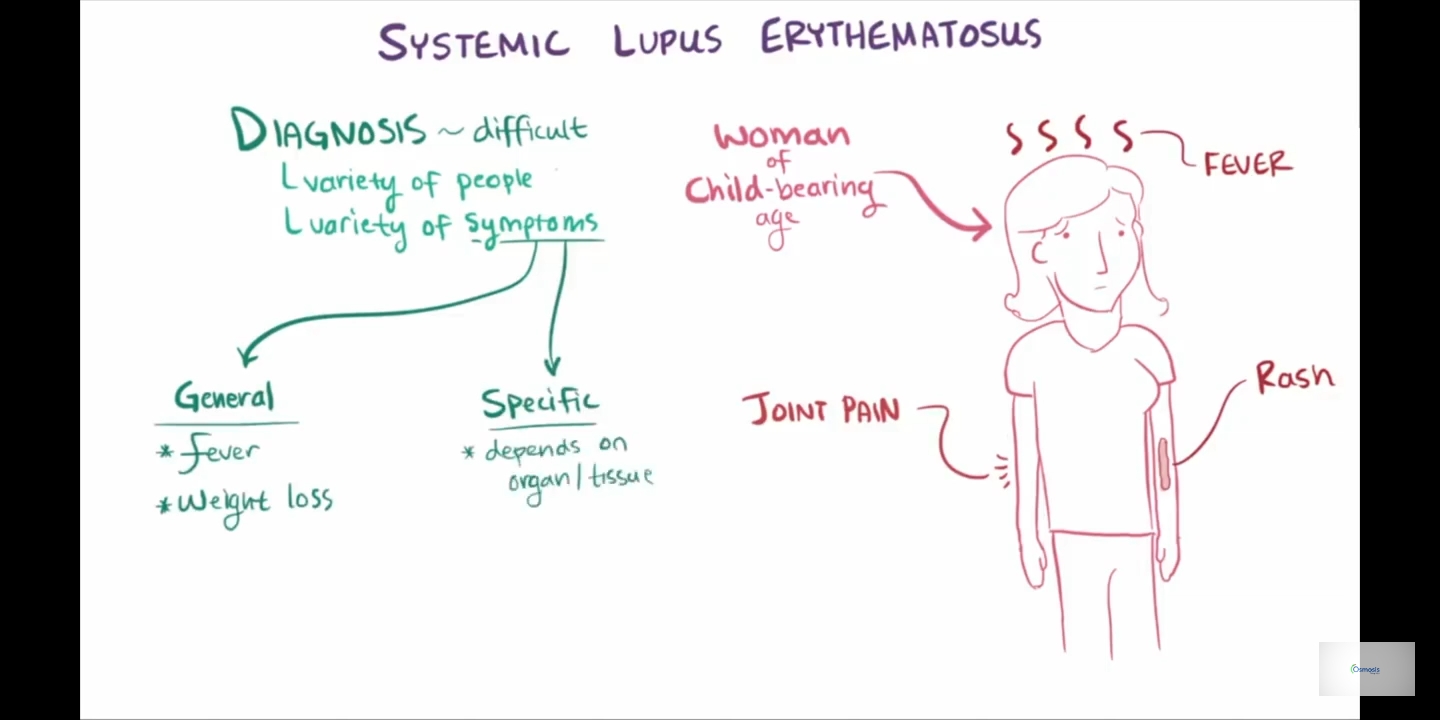 SYSTEMIC LUPUS ERYTHEMATOSUS
DIAGNOSIS ~ difficult
variety of people
variety of symptoms
General
* fever
* Weight loss
Specific
* depends on
organ/tissue
Woman
of
Child-bearing
age
FEVER
JOINT PAIN
Rash
Osmosis